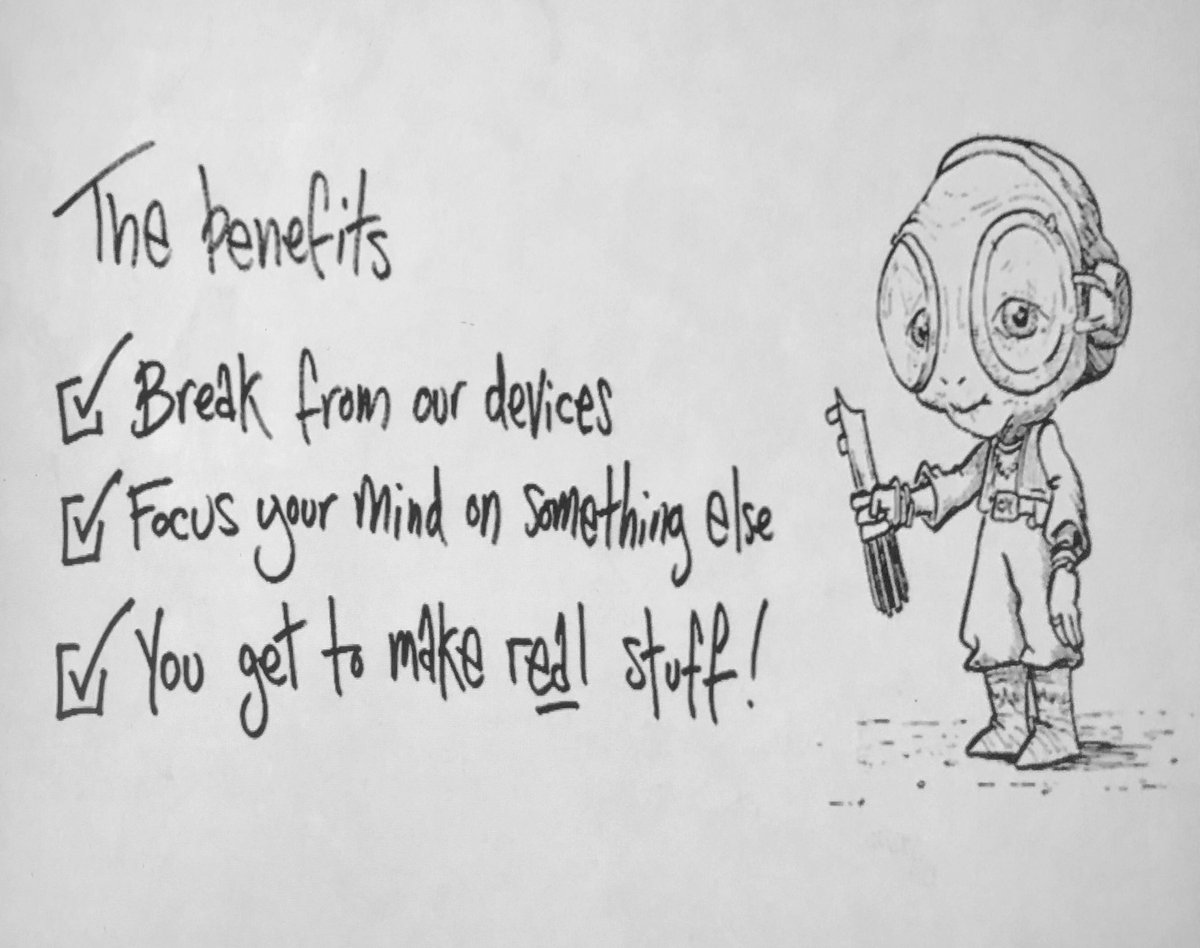 The benefits
Break from our devices
Focus your mind on something else
You get to make real stuff!